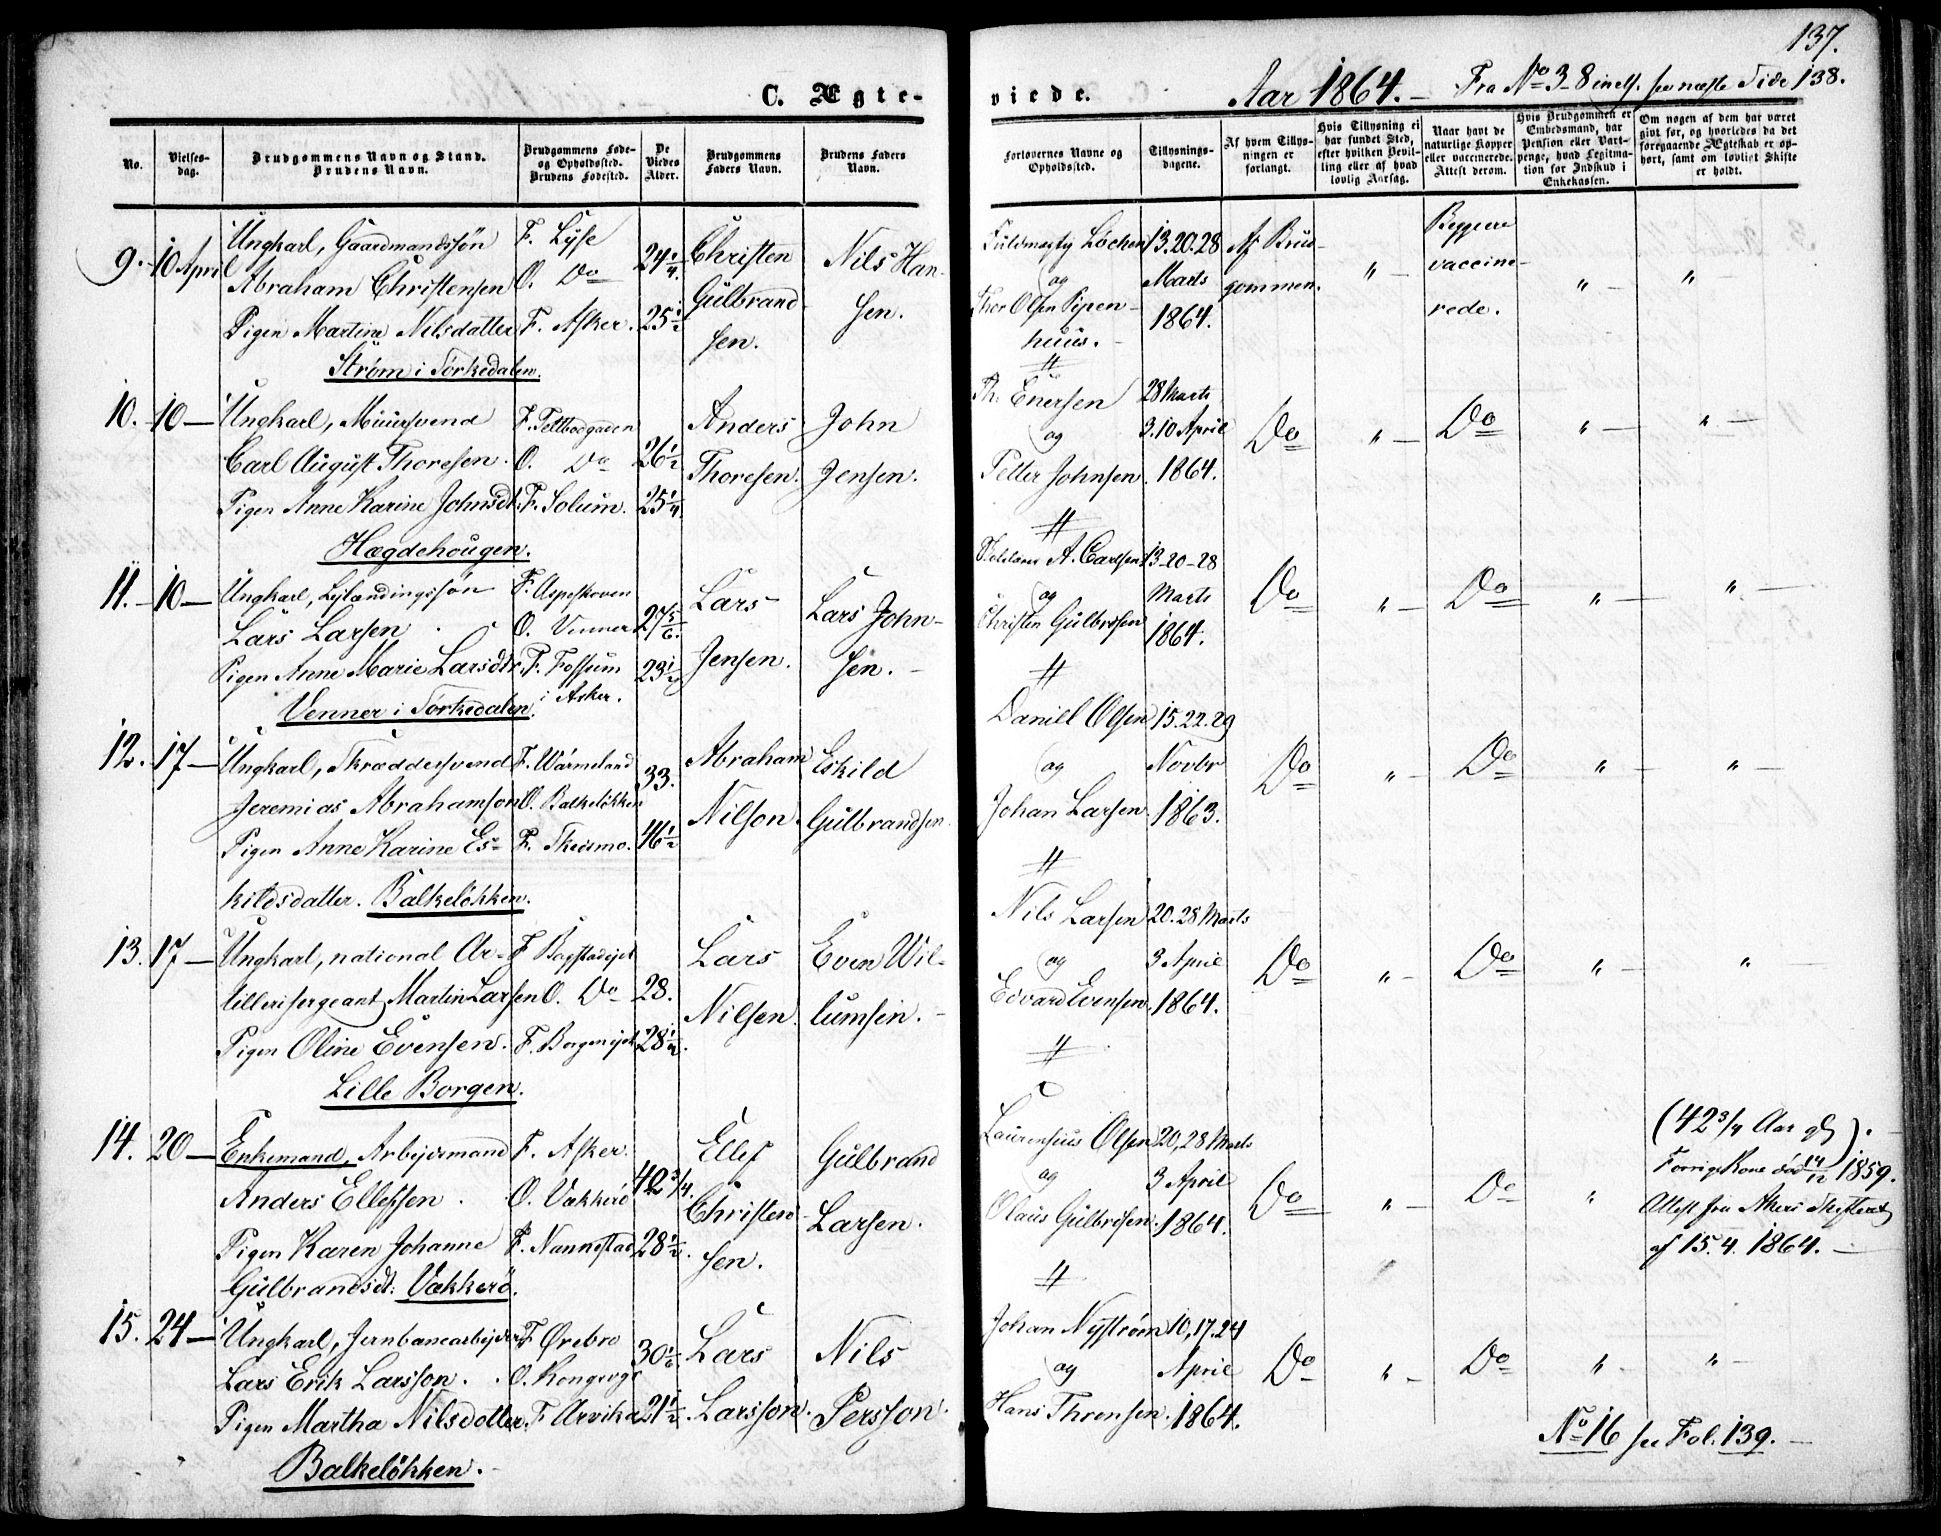 137.
C. Ægteviede.
Aar 1864. — Fra No 3-8 incls. see næste Side 138.
No.
Vielsesdag.
Brudgommens Navn og Stand.
Brudens Navn.
Brudgommens Føde-
og Opholdssted.
Brudens Fødested.
De
Viedes
Alder.
Brudgommens
Faders Navn.
Brudens Faders
Navn.
Forlovernes Navne og
Opholdssted.
Tillysnings-
dagene.
Af hvem Tillys-
ningen er
forlangt.
Hvis Tillysning ei
har fundet Sted,
efter hvilken Bevil-
ling eller af hvad
lovlig Aarsag.
Naar havt de
naturlige Kopper
eller vaccinerede.
Attest derom.
Hvis Brudgommen er
Embedsmand, har
Pension eller Vart-
penge, hvad Legitima-
tion for Indskud i
Enkekassen.
Om nogen af dem har været
givt før, og hvorledes da det
foregaaende Ægteskab er op-
hørt, samt om lovligt Skifte
er holdt.
9. 10 April
Ungkarl, Gaardmandssøn
Abraham Christensen
Pigen Martine Nilsdatter
Strøm i Sørkedalen.
F. Lyse
O. Do
F. Asker.
24 1/4.
25 1/2
Christen
Gulbrand-
sen.
Nils Han-
sen.
Løchen
og
Thor Olsen Pipen-
huus.
13.20.28
Marts
1864.
Af Brud-
gommen.
" —
Begge
vaccine-
rede.
" —
" —
10. 10 —
Ungkarl, Muursvend
Carl August Thoresen.
Pigen Anne Karine Johnsdt.
Hægdehougen.
F. Feltbodgaden
O. Do
F. Solum.
26 1/2
25 1/4.
Anders
Thoresen.
John
Jensen.
Th. Enersen
og
Petter Johnsen.
28 Marts
3.10 April
1864.
Do
" —
Do
" —
" —
11. 10 —
Ungkarl, Leilændingssøn
Lars Larsen
Pigen Anne Marie Larsdtr.
Venner i Sørkedalen.
F. Aspeskoven
O. Venner
F. Fossum
i Asker.
27 5/6.
23 1/2
Lars
Jensen.
Lars John-
sen. —
A. Carlsen
og
Christen Gulbrsen
13-20-28
Marts
1864.
Do
" —
Do
" —
" —
12. 17 —
Ungkarl, Skræddersvend
Jeremias Abrahamson
Pigen Anne Karine Es-
kildsdatter. Balkeløkken.
F. Wärmeland
O. Balkeløkken
F. Skedsmo.
33.
46 1/2
Abraham
Nilson.
Eskild
Gulbrandsen.
Daniel Olsen
og
Johan Larsen
15.22.29
Novbr
1863.
Do
" —
Do
" —
" —
13. 17 —
Ungkarl, national Ar-
tillerisergeant Martin Larsen
Pigen Oline Evensen.
Lille Borgen.
F. Bogstadejet
O. Do
F. Borgenejet
28.
28 1/4.
Lars
Nilsen.
Even Wil-
lumsen. —
Nils Larsen
og
Edvard Evensen.
20.28 Marts
3 April
1864.
Do
" —
Do
" —
" —
14. 20 —
Enkemand, Arbejdsmand
Anders Ellefsen.
Pigen Karen Johanne
Gulbrandsdt: Vækkerø.
F. Asker.
O. Vækkerø
F. Nannestad
42 3/4.
28 1/2.
Ellef
Christen-
sen.
Gulbrand
Larsen.
Laurensius Olsen
og
Olaus Gulbrdsen.
20,28 Marts
3 April
1864.
Do
" —
Do
"
(42 3/4 Aar gl).
Forrige Kone død 14/12 1859.
Attest fra Akers Skifteret
af 15.4.1864. —
15. 24 —
Ungkarl, Jernbanearbejder
Lars Erik Larsson.
Pigen Martha Nilsdotter
Balkeløkken. —
F. Ørebro
O. Kongsvgr
F. Arvika
30 1/6.
21 1/2.
Lars
Larsson.
Nils
Persson.
Johan Nyström
og
Hans Thronsen.
10,17.24
April
1864.
Do
" —
Do
" —
" —
No 16 see Fol. 139. —